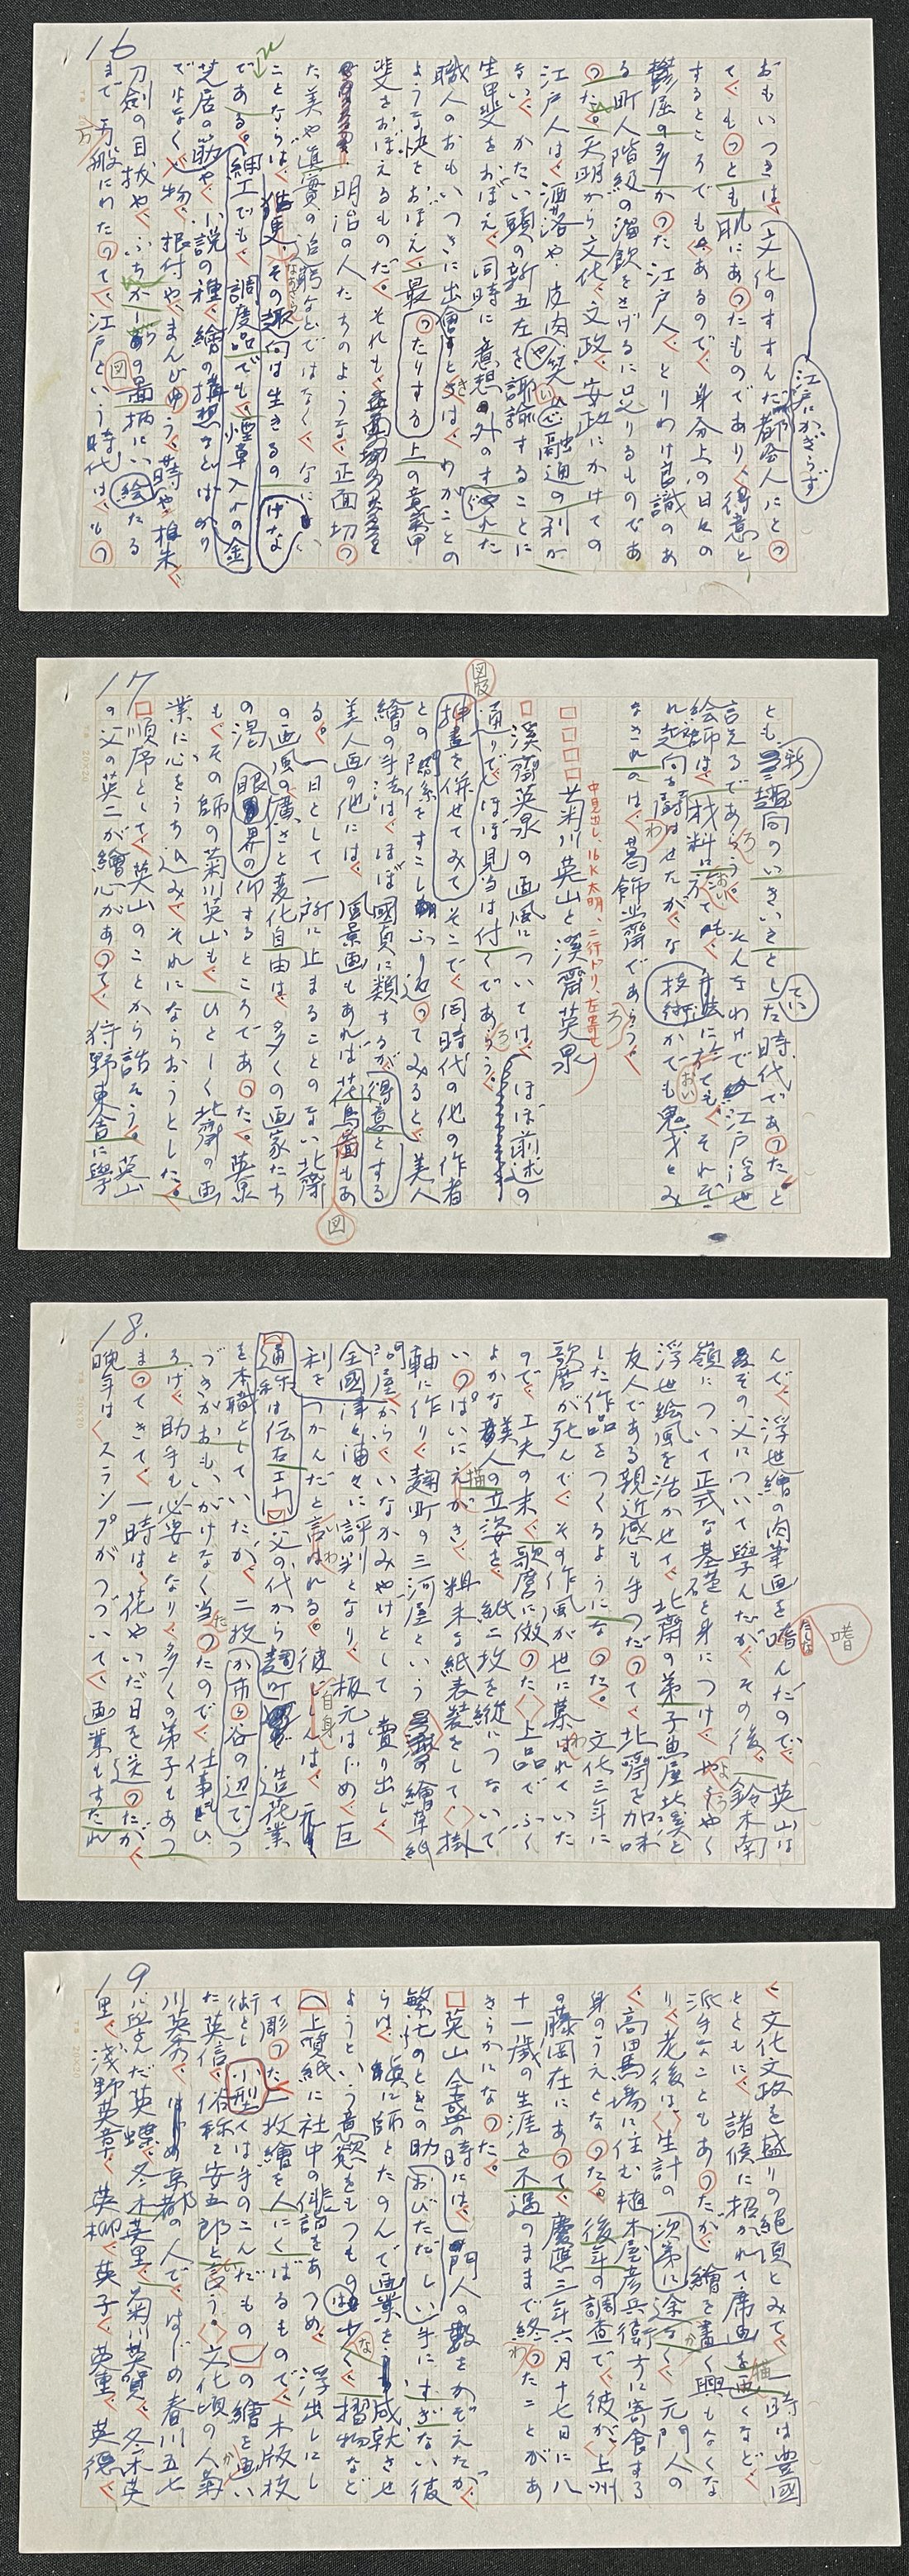 16
江戸にかぎらず
おもいつきは、文化のすすんだ都会人にとっ
て、もっとも肌にあったものであり、得意と
するところでもあるので、身分上の日々の
鬱屈の多かった江戸人、とりわけ良識のあ
る町人階級の溜飲をさげるに足りるものであ
った。天明から文化、文政、安政にかけての
江戸人は、洒落や、皮肉や、笑い、融通の利か
ない、かたい頭の新五左を諷諭することに
生甲斐をおぼえ、同時に意想外のすぐれた
職人のおもいつきに出會うときは、わがことの
ような快をおぼえ、最上の意氣甲
ったりする
斐をおぼえるものだ。それも
明治の人たちのような、正面切っ
た美や真實の追窮などではなく、なに
ことならば、猶更、その趣向は生きるの
げな
である。細工でも、調度品でも、煙草入れの金
芝居の筋や、小説の種、繪の構想などばかり
でなく、小物、根付や、まんじゅう、蒔や、堆朱、
刀劍の目抜や、ふちかしらの図柄にいたる
絵
まで、万般にわたって、江戸という時代は、もっ
17
とも新趣向のいきいきとしてい た時代であった。と
言えるであろう。そんなわけで、江戸浮世
絵師は、材料に於ても、手法に於ても、それぞ
れ趣向を競わせたが、な
技術
かでも鬼才とみ
なされのは、葛飾北齋であろう。
中見出し、16K太明、二行ドリ、左寄セ
□□□□菊川英山と溪齋英泉
図版
□溪齋英泉の画風については、ほぼ前述の
通りでほぼ見当は付くであろう。
挿畫を併せてみて
そこで、同時代の他の作者
との関係をすこしふり返ってみると、美人
繪の手法は、ほぼ國貞に類するが、得意とする
美人画の他には、風景画もあれば花鳥図もあ
る。一日として一所に止まることのない北齋
の画風の廣さと変化自由は、多くの画家たち
の渇仰するところであった。英泉
眼界の
も、その師の菊川英山も、ひとしく北齋の画
業に心をうち込み、それにならおうとした。
□順序として、英山のことから話そう。英山
の父の英二が繪心があって、狩野東舎に學
図
18.
んで、浮世繪の肉筆画を嗜んだので、英山は
嗜
その父について學んだが、その後、鈴木南
嶺について正式な基礎を身につけ、ようやく
浮世絵風を活かせて、北齋の弟子魚屋北溪と
友人である親近感も手つだって、北齋を加味
した作品をつくるようになった。文化三年に
歌麿が死んで、その作風が世に慕われていた
ので、工夫の末、歌麿に倣った、上品でふく
よかな美人の立姿を、紙二枚を縦につないで
いっぱいに描き、粗末な紙表装をして、掛
軸に作り、麹町の三河屋という繪草紙
問屋から、いなかみやげとして賣り出し、
全國津々浦々に評判となり、板元はじめ、巨
利をつかんだと言われる。彼自身は、
通称は伝右エ門
父の代から麹町
造花業
を本職としていたが、二枚
か市ヶ谷の辺で
つ
づきがおもいがけなく当ったので、仕事もひ
ろげ、助手も必要となり、多くの弟子もあつ
まってきて、一時は、花やいだ日を送ったが、
晩年は、スランプがつづいて、画業もすたれ
19
、文化文政を盛りの絶頂とみて、一時は豊國
とともに、諸候に招かれて席画を描くなど、
派手なこともあったが、繪を畫く興もなくな
り、老後は、生計の
次第に
途なく、元門人の
、高田馬場に住む植木屋彦兵衛方に寄食する
身のうえとなった。後年の調査で、彼が、上州
の藤岡在にあって、慶應三年六月十七日に八
十一歳の生涯を不遇のままで終ったことがあ
きらかになった。
□英山全盛の時には、門人の數をかぞえたが、
繁忙のときの助
おびただしい
手にすぎない彼
らは、師とたのんで画業を成就させ
ようという意慾をもつものは少なく、摺物など
（上質紙に社中の俳諧をあつめ、浮出しにし
て彫った一枚繪を人にくばるもので、木版技
術とし
小型
ては手のこんだもの）の繪を画い
た英信、俗称を安五郎と言う。文化頃の人、菊
川英秀、はじめ京都の人で、はじめ春川五七
に學んだ英蝶、冬木英里、菊川英賀、冬木英
里、浅野英章、英柳、英子、英重、英徳、